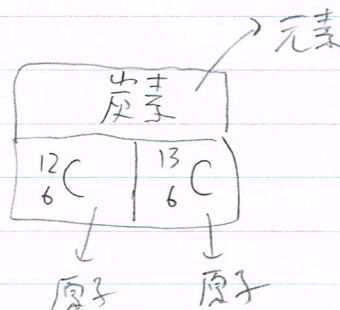 元素
炭素
¹²₆C ¹³₆C
原子 原子